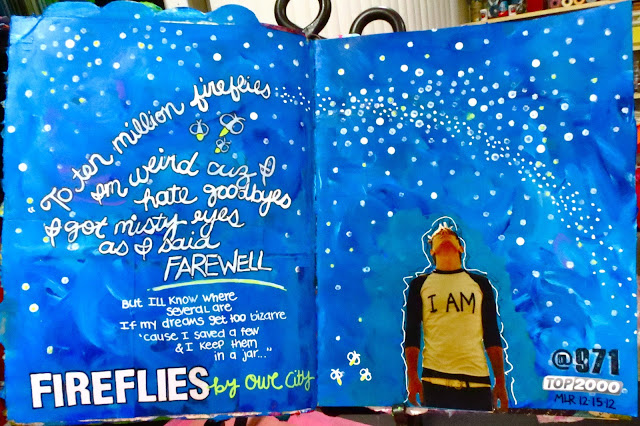 "To ten million fireflies
I'm weird cuz I
hate goodbyes
I got misty eyes
as I said
FAREWELL
But I'll know where
several are
If my dreams get too bizarre
'cause I saved a few
& I keep them
in a jar..."
FIREFLIES by Owl City
I AM
@971
TOP2000
MLR 12·15·12